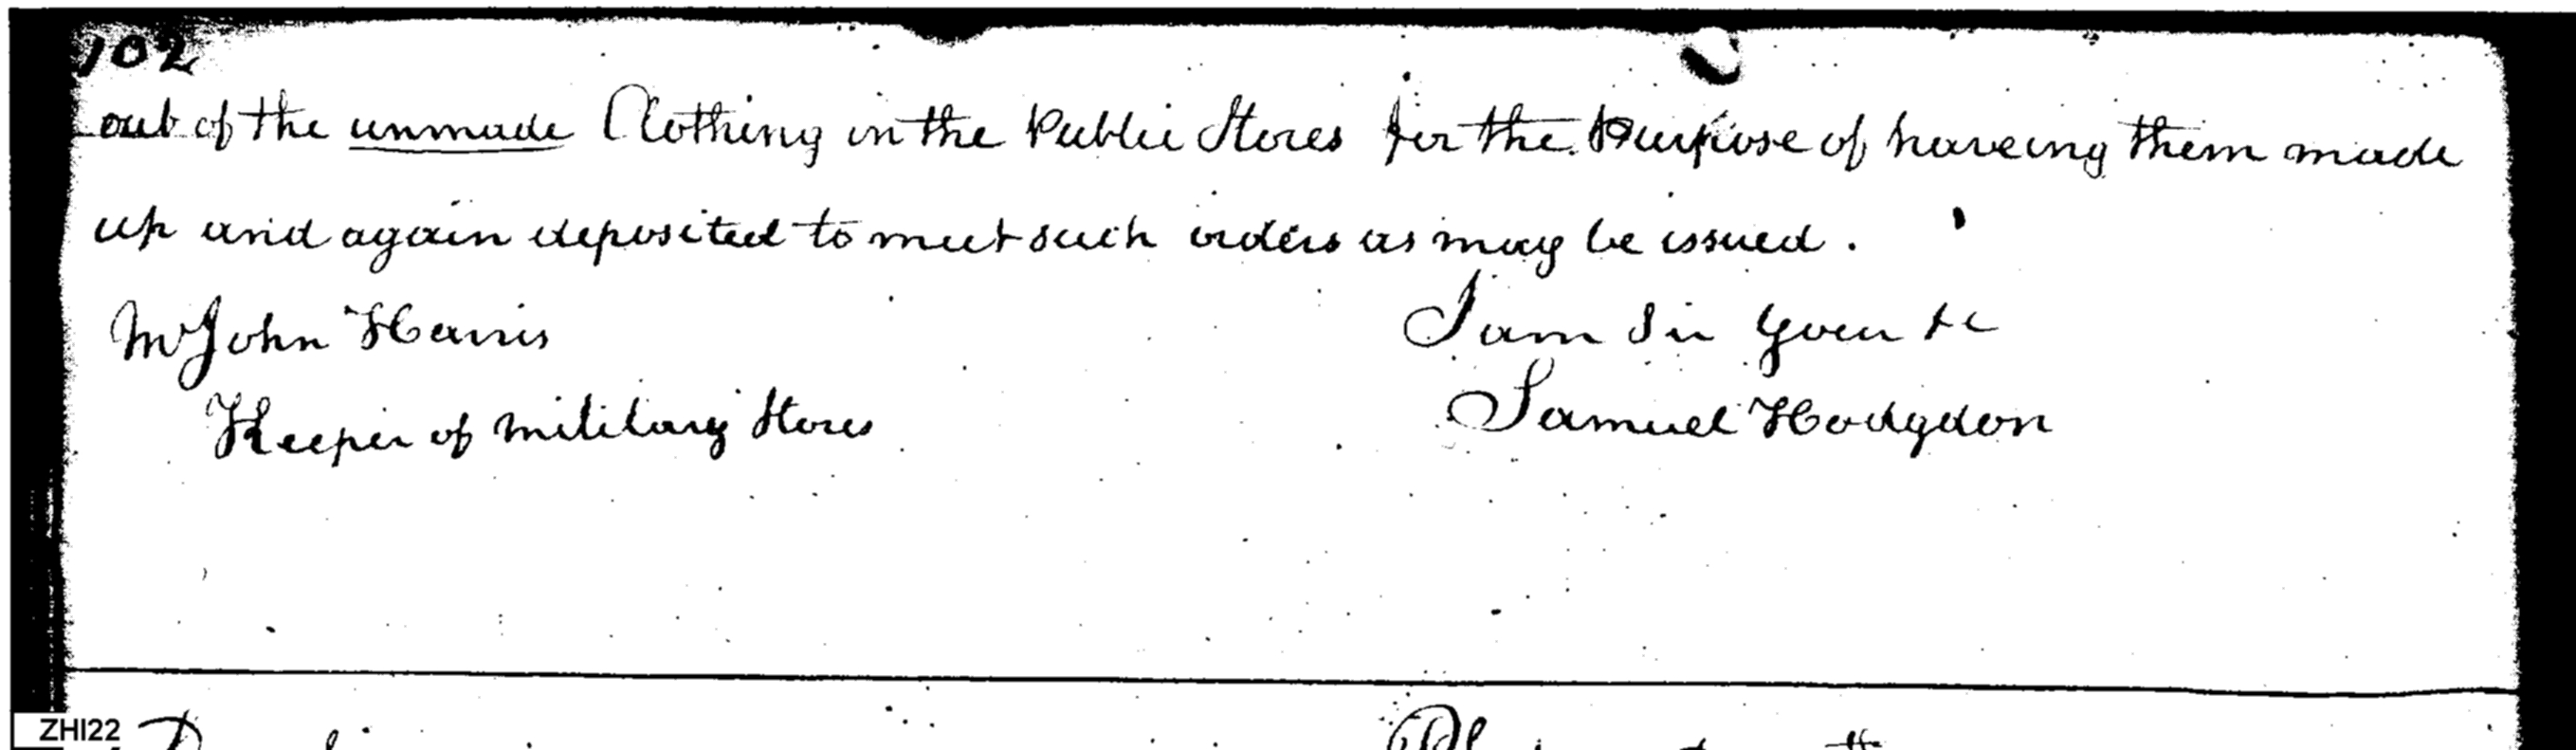 102
out of the unmade Clothing in the Public Stores for the Purpose of haveing them made
up and again deposited to meet such orders as may be issued.
Mr John Harris
I am Sir your &c
Keeper of military Stores
Samuel Hodgdon
ZHI22